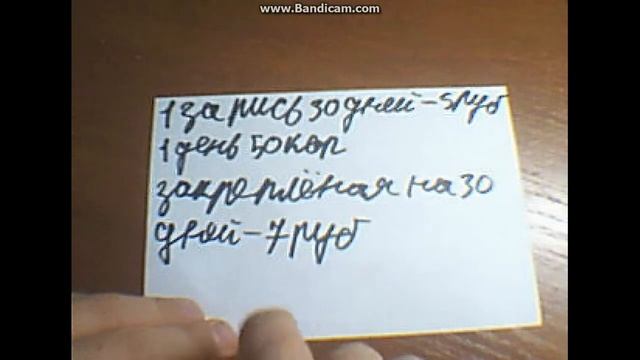 www.Bandicam.com
1 запись 30 дней - 5 руб
1 день 50 коп
закреплёная на 30
дней - 7 руб